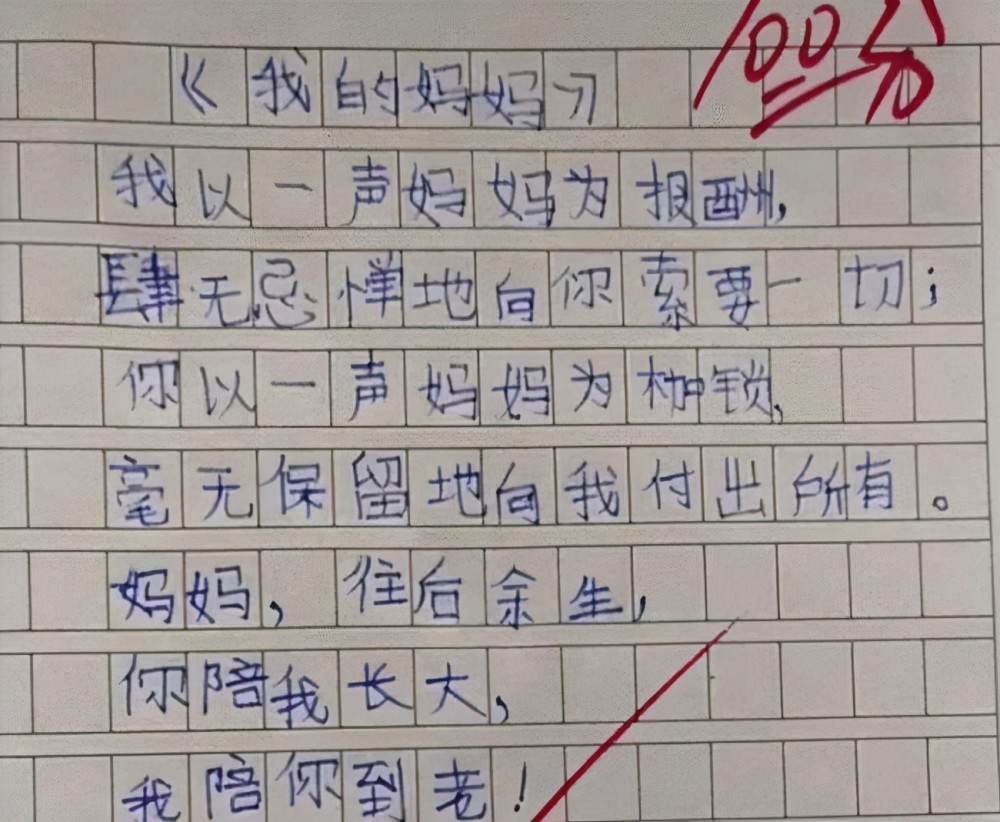 100分
《我的妈妈》
我以一声妈妈为报酬,
肆无忌惮地向你索要一切;
你以一声妈妈为枷锁,
毫无保留地向我付出所有。
妈妈,往后余生,
你陪我长大,
我陪你到老!